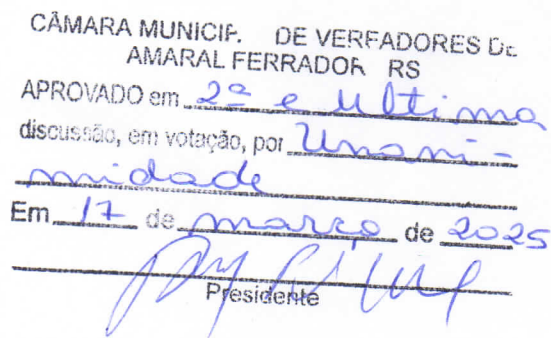 CÂMARA MUNICIP. DE VEREADORES DE
AMARAL FERRADOR RS
APROVADO em 2ª e Ultima
discussão, em votação, por Unani-
midade
Em 17 de março de 2025
Presidente